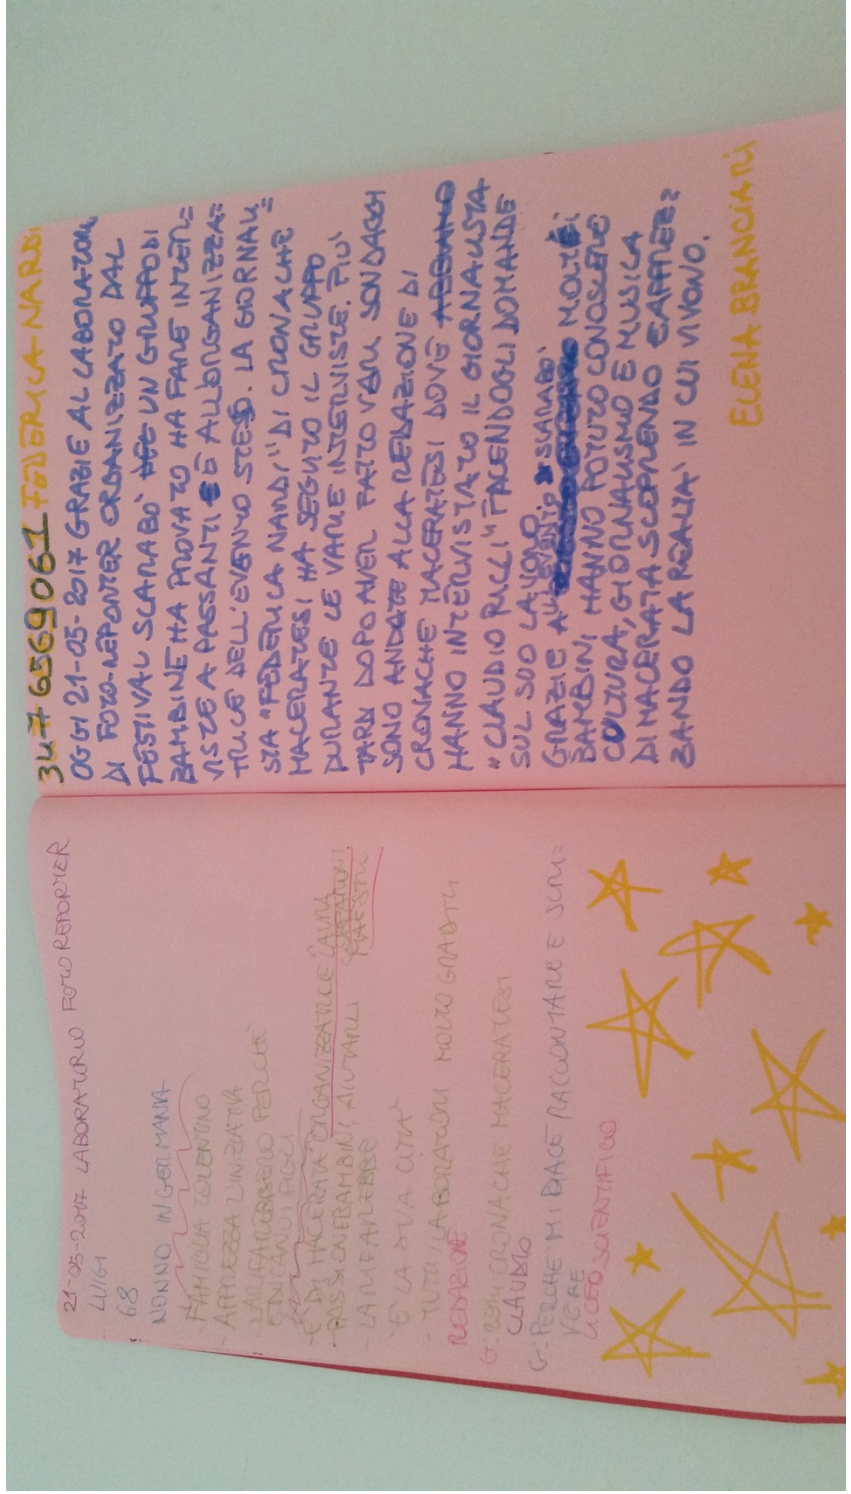 21-05-2017 LABORATORIO FOTO REPORTER
LUIGI
68
NONNO IN GERMANIA
-FAMIGLIA TOLENTINO
-APPREZZA L'INIZIATIVA
-LA RIFAREBBERO PERCHÉ
FIGLI
-É DI MACERATA ORGANIZZATRICE LAURA
-PASSIONE BAMBINI, AIUTARLI
MAESTRI
-LA RIFAREBBE
É LA SUA CITTA'
- TUTTI I LABORATORI MOLTO GRADITI
REDAZIONE
G: 2014 CRONACHE MACERATESI
CLAUDIO
G: PERCHÉ MI PIACE RACCONTARE E SCRI=
VERE
LICEO SCIENTIFICO
347 6569061 FEDERICA NARDI
OGGI 21-05-2017 GRAZIE AL LABORATORI
DI FOTO-REPORTER ORGANIZZATO DAL
FESTIVAL SCARABO' DEL UN GRUPPO DI
BAMBINE HA PROVATO HA FARE INTER=
VISTE A PASSANTI E ALL'ORGANIZZA=
TRICE DELL'EVENTO STESSO. LA GIORNALI=
STA "FEDERICA NARDI" DI CRONACHE
MACERATESI HA SEGUITO IL GRUPPO
DURANTE LE VARIE INTERVISTE. PIU'
TARDI DOPO AVER FATTO VARI SONDAGGI
SONO ANDATE ALLA REDAZIONE DI
CRONACHE MACERATESI DOVE ABBIAMO
HANNO INTERVISTATO IL GIORNALISTA
"CLAUDIO RICCI" FACENDOGLI DOMANDE
SUL SUO LAVORO
GRAZIE ALL'EVENTO SCARABO' MOLTI
BAMBINI HANNO POTUTO CONOSCERE
CULTURA, GIORNALISMO E MUSICA
DI MACERATA SCOPRENDO E APPREZ=
ZANDO LA REALTA' IN CUI VIVONO.
ELENA BRANCIARI